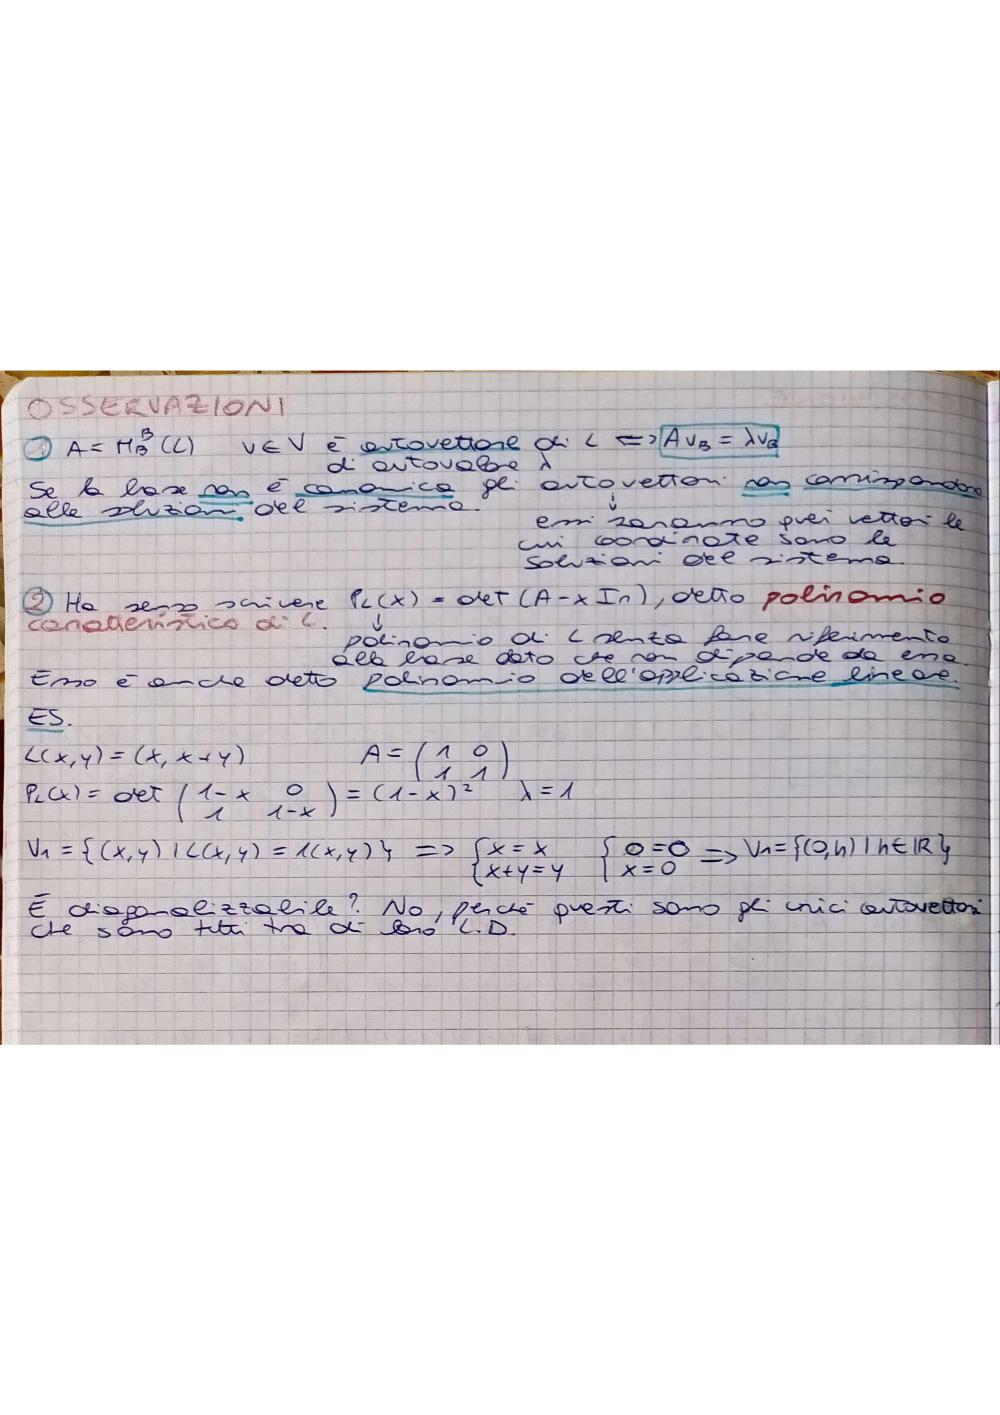 OSSERVAZIONI
① A = M_B^B (L) v ∈ V è autovettore di L <=> A v_B = λ v_B
di autovalore λ
Se la base non è canonica gli autovettori non corrispondono
alle soluzioni del sistema.
essi saranno quei vettori le
cui coordinate sono le
soluzioni del sistema.
② Ha senso scrivere P_L(x) = det (A - x In), detto polinomio
caratteristico di L.
polinomio di L senza fare riferimento
alla base dato che non dipende da essa.
Esso è anche detto polinomio dell'applicazione lineare.
ES.
L(x,y) = (x, x+y) A = (1 0
1 1)
P_L(x) = det (1-x 0
1 1-x) = (1-x)² λ = 1
V₁ = {(x,y) | L(x,y) = 1(x,y)} => {x = x {0 = 0 => V₁ = {(0,h) | h ∈ ℝ}
{x+y = y {x = 0
È diagonalizzabile? No, perché questi sono gli unici autovettori
che sono tutti tra di loro L.D.